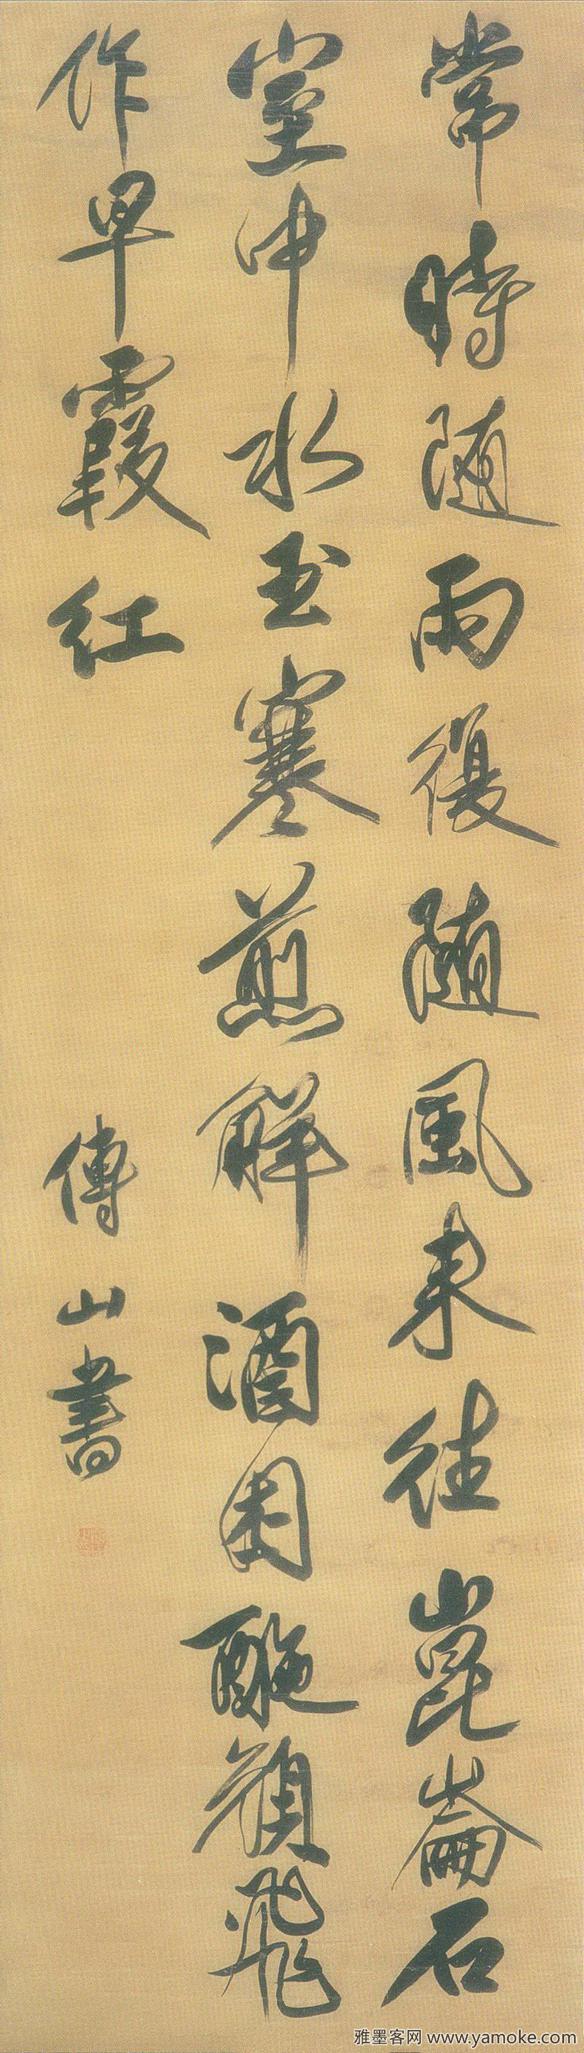 常時隨雨復隨風來往崑崙石
室中水玉寒煎解酒困酡顏飛
作早霞紅
傅山書
雅墨客网 www.yamoke.com